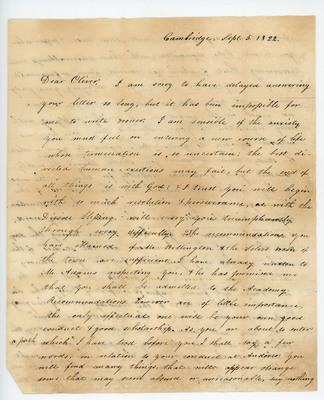 Cambridge, Sept. 5. 1822.
Dear Oliver, I am sorry to have delayed answering
your letter so long, but it has been impossible for
me to write sooner. I am sensible of the anxiety
you must feel on entering a new course of life
whose termination is so uncertain; the best di-
rected human exertions may fail, but the end of
all things is with God; & I trust you will begin
with so much resolution & perseverance, as with the
Divine Blessing will carry you triumphantly
through every difficulty. The recommendations you
have
the town are sufficient. I have already written to
Mr. Adams respecting you, & he has promised me
that you shall be admitted to the Academy.
Recommendations however are of little importance.
the only effectual one will be your own good
conduct & good scholarship. As you are about to enter
a path which I have trod before you I shall say a few
words, in relation to your conduct at Andover. you
will find many things that will appear strange
some that may seem absurd or unreasonable, say nothing